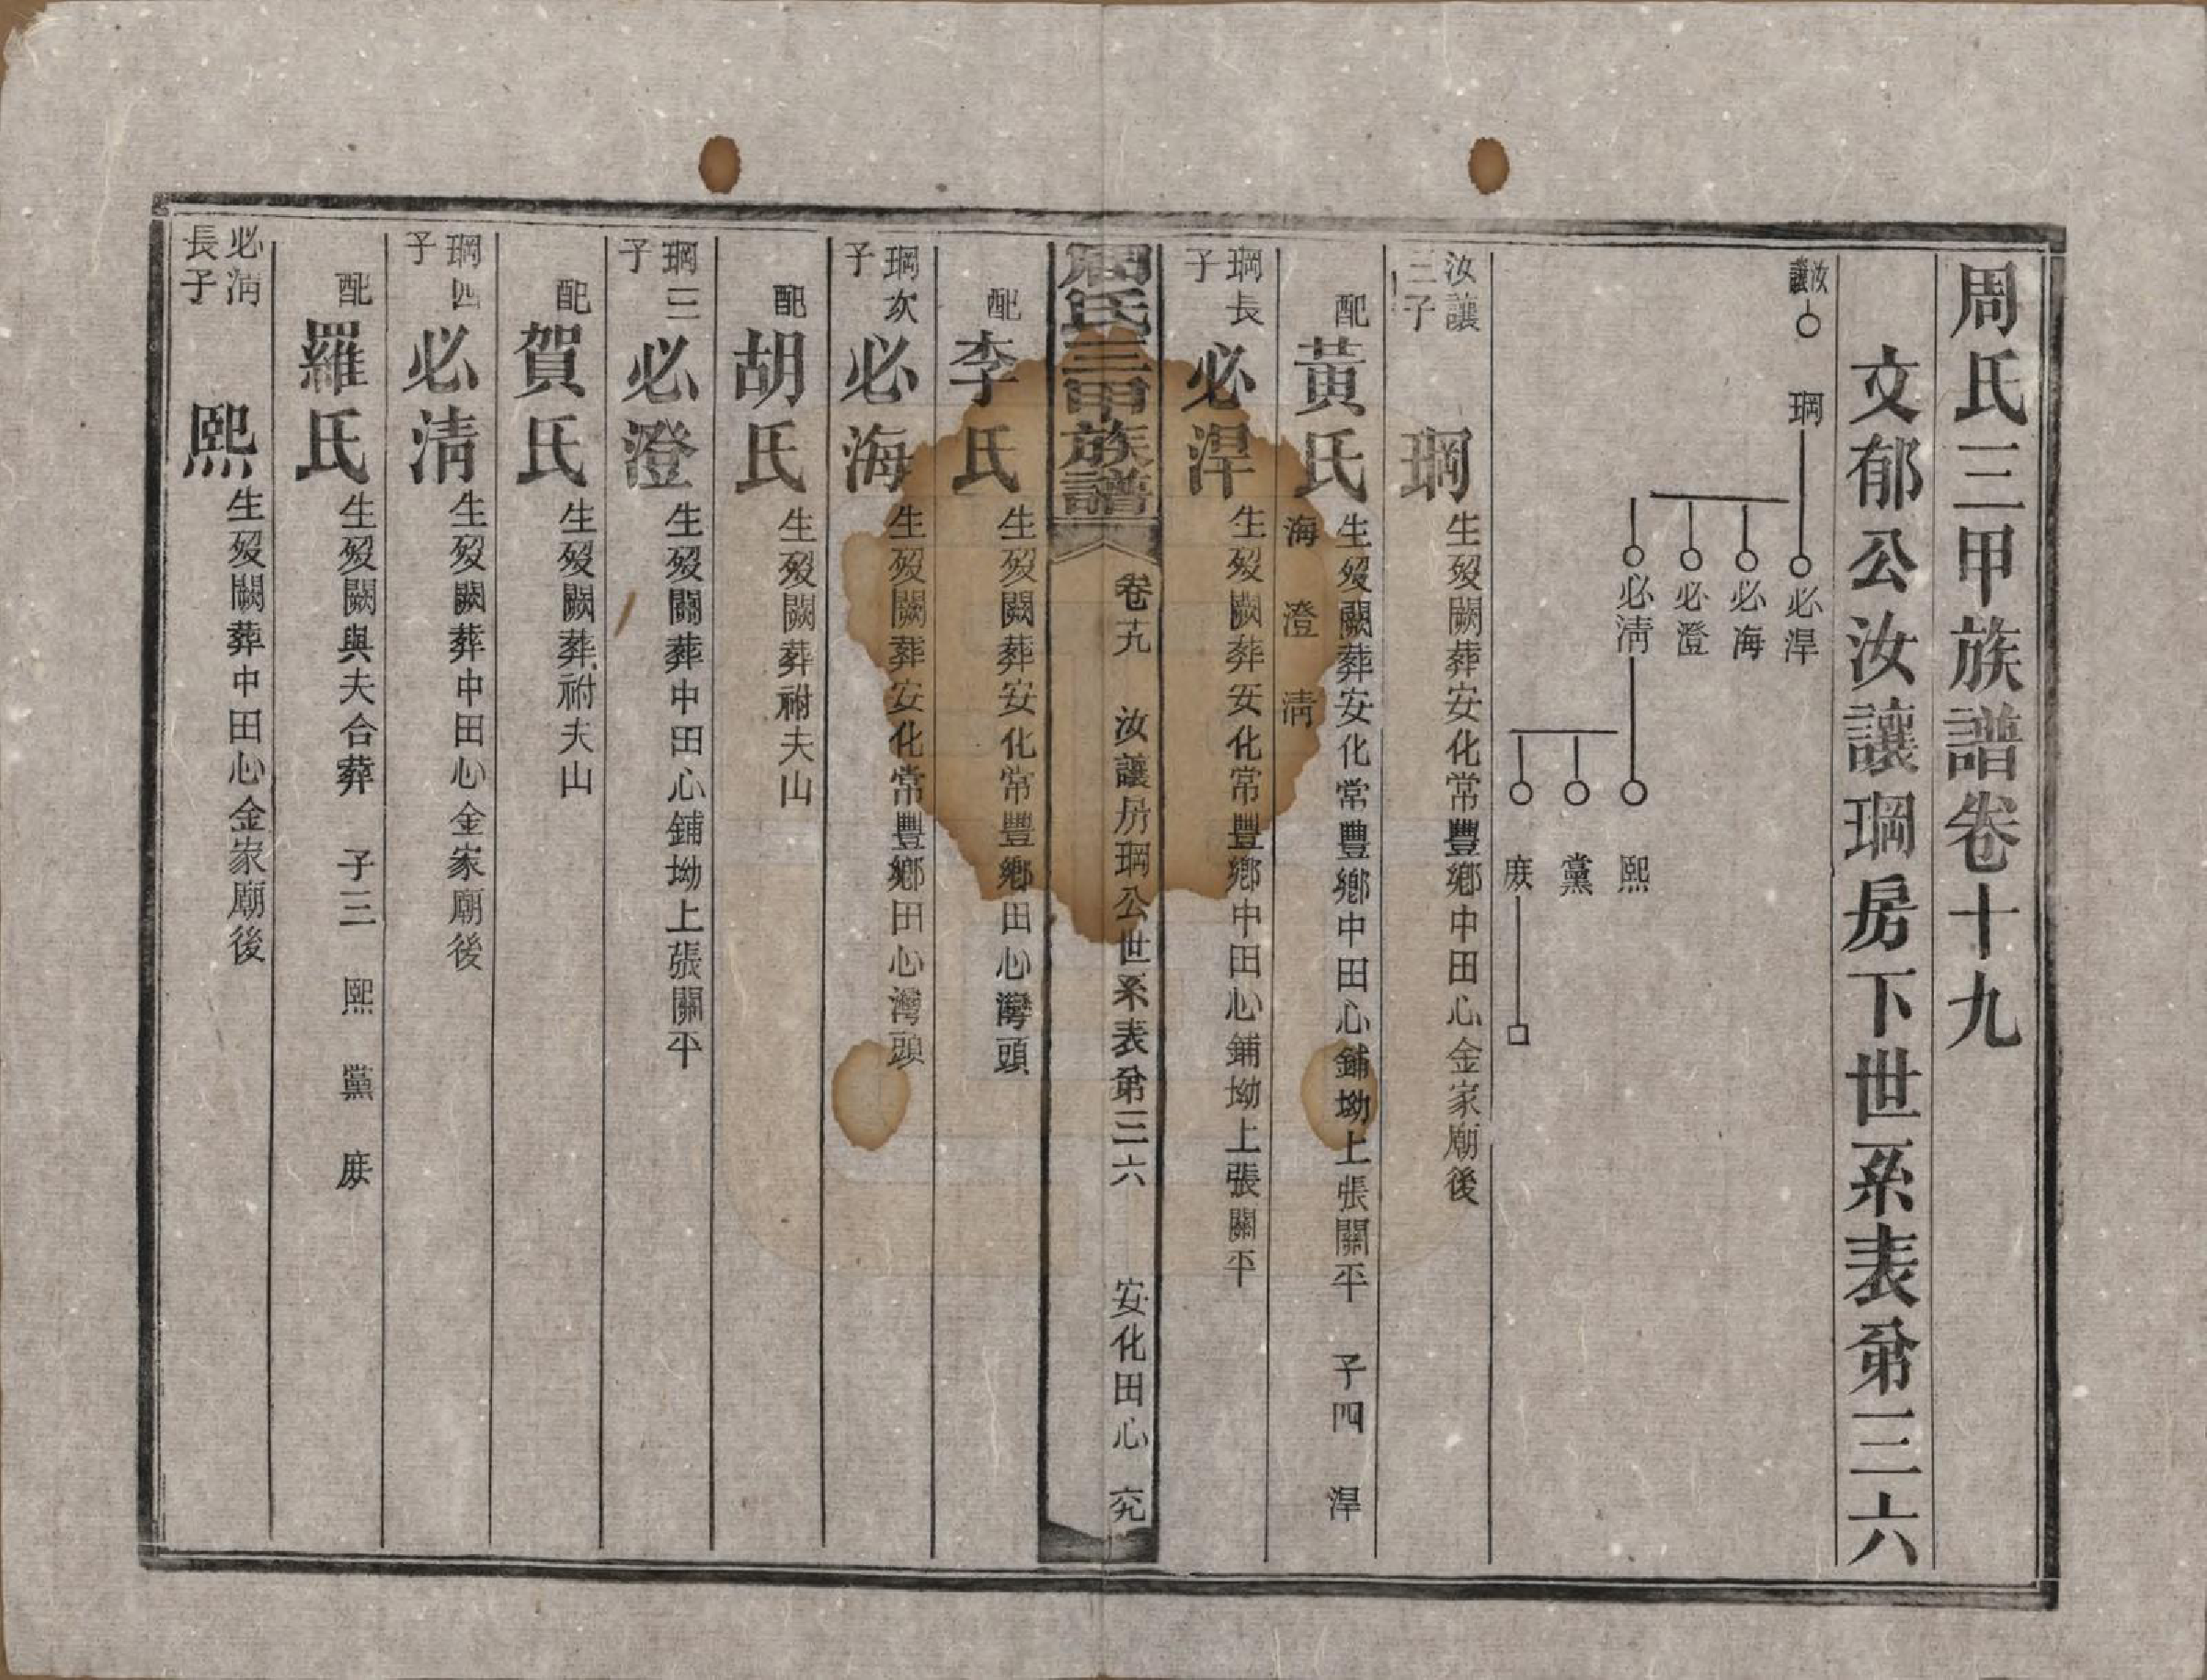 周氏三甲族譜卷十九
文郁公汝讓琱房下世系表第三六
汝讓 琱
必浧
必海
必澄
必淸
熙
黨
庻
汝讓三子 琱 生歿闕葬安化常豐鄉中田心金家廟後
配黃氏 生歿闕葬安化常豐鄉中田心鋪坳上張關平 子四 浧
海 澄 淸
琱長子 必浧 生歿闕葬安化常豐鄉中田心鋪坳上張關平
周氏三甲族譜 卷十九 汝讓房琱公世系表第三六 安化田心 究
配李氏 生歿闕葬安化常豐鄉田心灣頭
琱次子 必海 生歿闕葬安化常豐鄉田心灣頭
配胡氏 生歿闕葬祔夫山
琱三子 必澄 生歿闕葬中田心鋪坳上張關平
配賀氏 生歿闕葬祔夫山
琱四子 必淸 生歿闕葬中田心金家廟後
配羅氏 生歿闕與夫合葬 子三 熙 黨 庻
必淸長子 熙 生歿闕葬中田心金家廟後